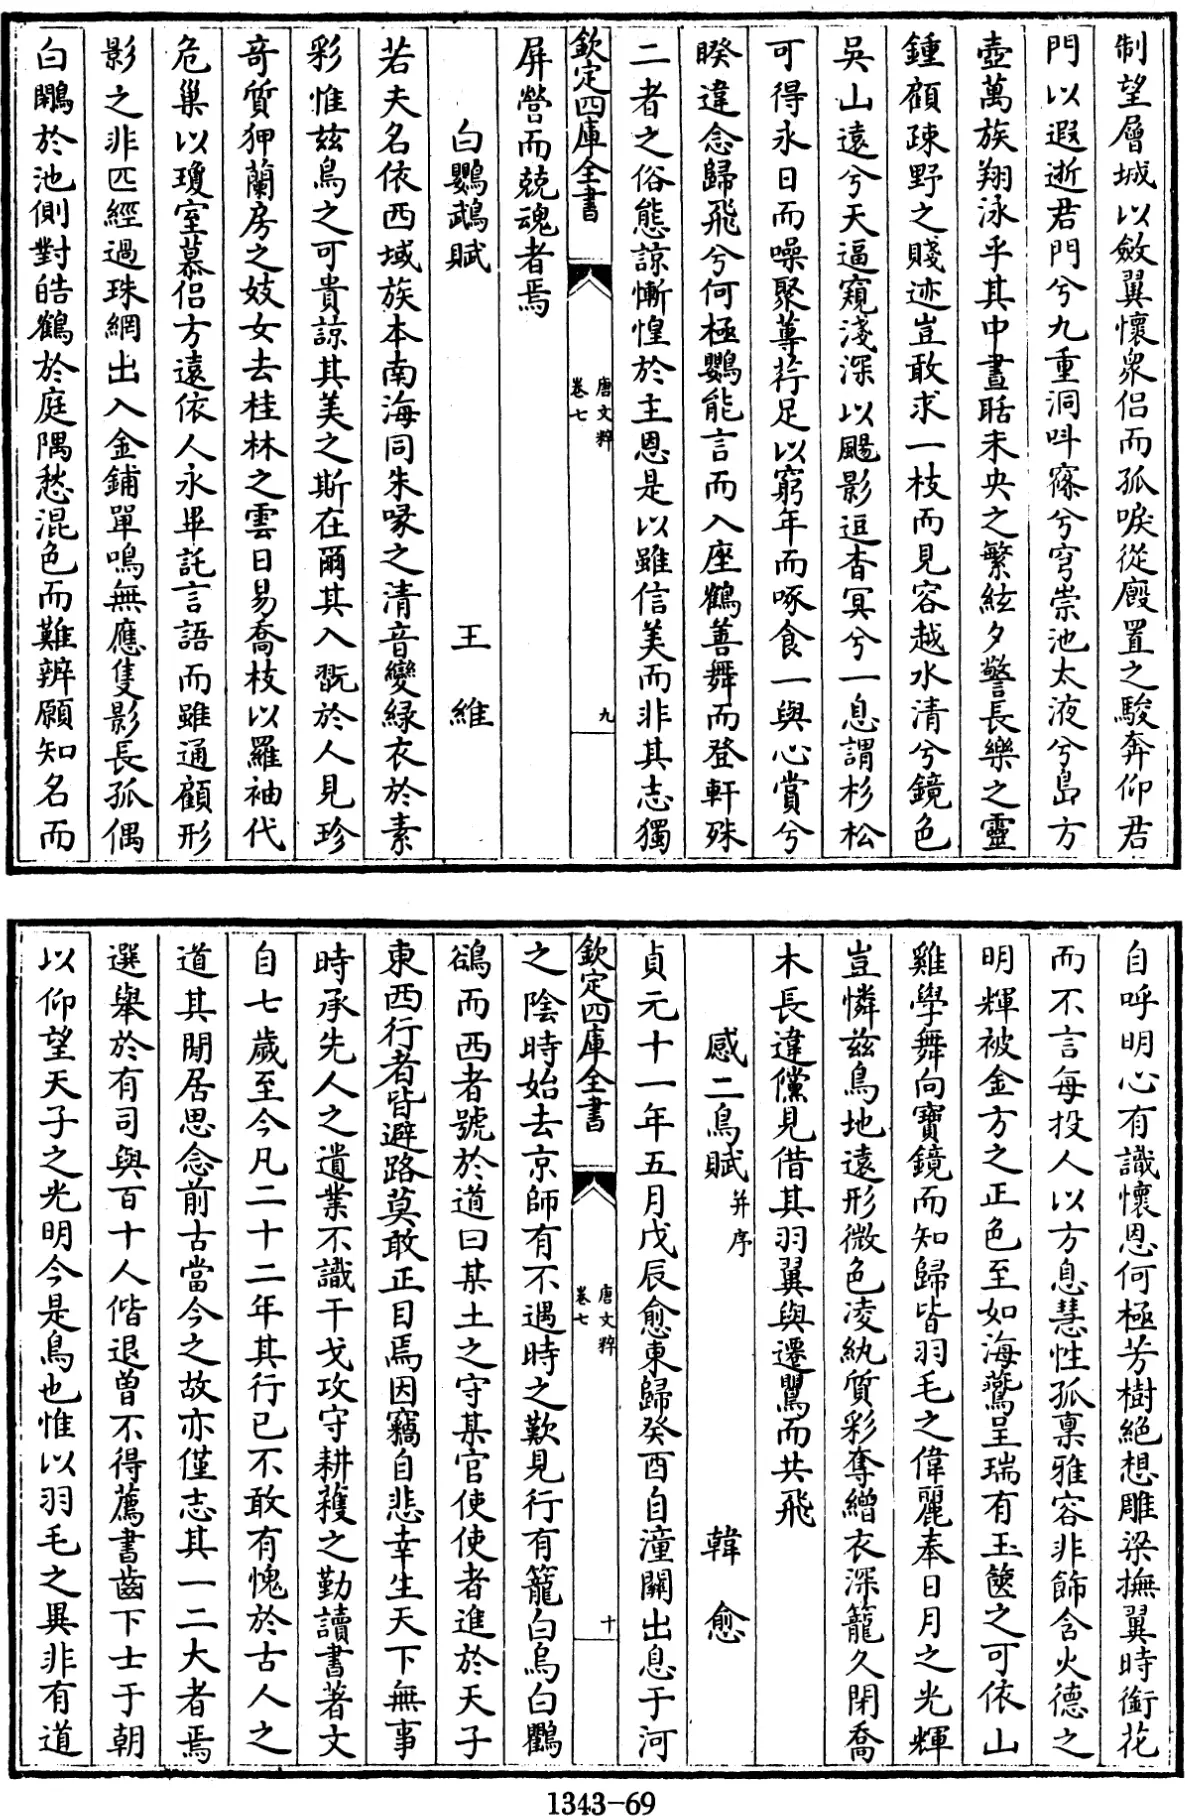 制望層城以斂翼懷衆侶而孤唳從廄置之駿奔仰君
門以遐逝君門兮九重洞叫寥兮穹崇池太液兮島方
壺萬族翔泳乎其中晝聒未央之繁絃夕警長樂之靈
鍾顧疎野之賤迹豈敢求一枝而見容越水清兮鏡色
吳山遠兮天逼窺淺深以颺影逗杳冥兮一息謂杉松
可得永日而噪聚蓴荇足以窮年而啄食一與心賞兮
睽違念歸飛兮何極鸚能言而入座鶴善舞而登軒殊
二者之俗態諒慚惶於主恩是以雖信美而非其志獨
欽定四庫全書
唐文粹
卷七
九
屏營而兢魂者焉
白鸚鵡賦
王維
若夫名依西域族本南海同朱喙之清音變緑衣於素
彩惟茲鳥之可貴諒其美之斯在爾其入翫於人見珍
奇質狎蘭房之妓女去桂林之雲日易喬枝以羅袖代
危巢以瓊室慕侶方遠依人永畢託言語而雖通顧形
影之非匹經過珠網出入金鋪單鳴無應隻影長孤偶
白鷴於池側對皓鶴於庭隅愁混色而難辨願知名而
自呼明心有識懷恩何極芳樹絶想雕梁撫翼時銜花
而不言每投人以方息慧性孤稟雅容非飾含火德之
明輝被金方之正色至如海鷰呈瑞有玉筐之可依山
雞學舞向寶鏡而知歸皆羽毛之偉麗奉日月之光輝
豈憐茲鳥地遠形微色凌紈質彩奪繒衣深籠久閉喬
木長違儻見借其羽翼與遷鸎而共飛
感二鳥賦
并序
韓愈
貞元十一年五月戊辰愈東歸癸酉自潼關出息于河
欽定四庫全書
唐文粹
卷七
十
之陰時始去京師有不遇時之歎見行有籠白烏白鸜
鵒而西者號於道曰某土之守某官使使者進於天子
東西行者皆避路莫敢正目焉因竊自悲幸生天下無事
時承先人之遺業不識干戈攻守耕穫之勤讀書著文
自七歲至今凡二十二年其行已不敢有愧於古人之
道其閒居思念前古當今之故亦僅志其一二大者焉
選舉於有司與百十人偕退曾不得薦書齒下士于朝
以仰望天子之光明今是鳥也惟以羽毛之異非有道
1343-69